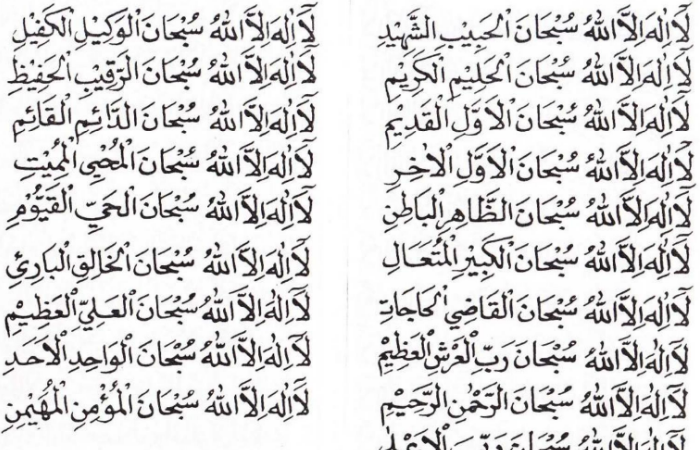 لَآ اِلٰهَ اِلَّا اللهُ سُبْحَانَ الْحَبِيْبِ الشَّهِيْدِ
لَآ اِلٰهَ اِلَّا اللهُ سُبْحَانَ الْحَلِيْمِ الْكَرِيْمِ
لَآ اِلٰهَ اِلَّا اللهُ سُبْحَانَ الْاَوَّلِ الْقَدِيْمِ
لَآ اِلٰهَ اِلَّا اللهُ سُبْحَانَ الْاَوَّلِ الْاٰخِرِ
لَآ اِلٰهَ اِلَّا اللهُ سُبْحَانَ الظَّاهِرِ الْبَاطِنِ
لَآ اِلٰهَ اِلَّا اللهُ سُبْحَانَ الْكَبِيْرِ الْمُتَعَالِ
لَآ اِلٰهَ اِلَّا اللهُ سُبْحَانَ الْقَاضِي الْحَاجَاتِ
لَآ اِلٰهَ اِلَّا اللهُ سُبْحَانَ رَبِّ الْعَرْشِ الْعَظِيْمِ
لَآ اِلٰهَ اِلَّا اللهُ سُبْحَانَ الرَّحْمٰنِ الرَّحِيْمِ
لَآ اِلٰهَ اِلَّا اللهُ سُبْحَانَ
لَآ اِلٰهَ اِلَّا اللهُ سُبْحَانَ الْوَكِيْلِ الْكَفِيْلِ
لَآ اِلٰهَ اِلَّا اللهُ سُبْحَانَ الرَّقِيْبِ الْحَفِيْظِ
لَآ اِلٰهَ اِلَّا اللهُ سُبْحَانَ الدَّائِمِ الْقَائِمِ
لَآ اِلٰهَ اِلَّا اللهُ سُبْحَانَ الْمُحْيِى الْمُمِيْتِ
لَآ اِلٰهَ اِلَّا اللهُ سُبْحَانَ الْحَيِّ الْقَيُّوْمِ
لَآ اِلٰهَ اِلَّا اللهُ سُبْحَانَ الْخَالِقِ الْبَارِئِ
لَآ اِلٰهَ اِلَّا اللهُ سُبْحَانَ الْعَلِيِّ الْعَظِيْمِ
لَآ اِلٰهَ اِلَّا اللهُ سُبْحَانَ الْوَاحِدِ الْاَحَدِ
لَآ اِلٰهَ اِلَّا اللهُ سُبْحَانَ الْمُؤْمِنِ الْمُهَيْمِنِ